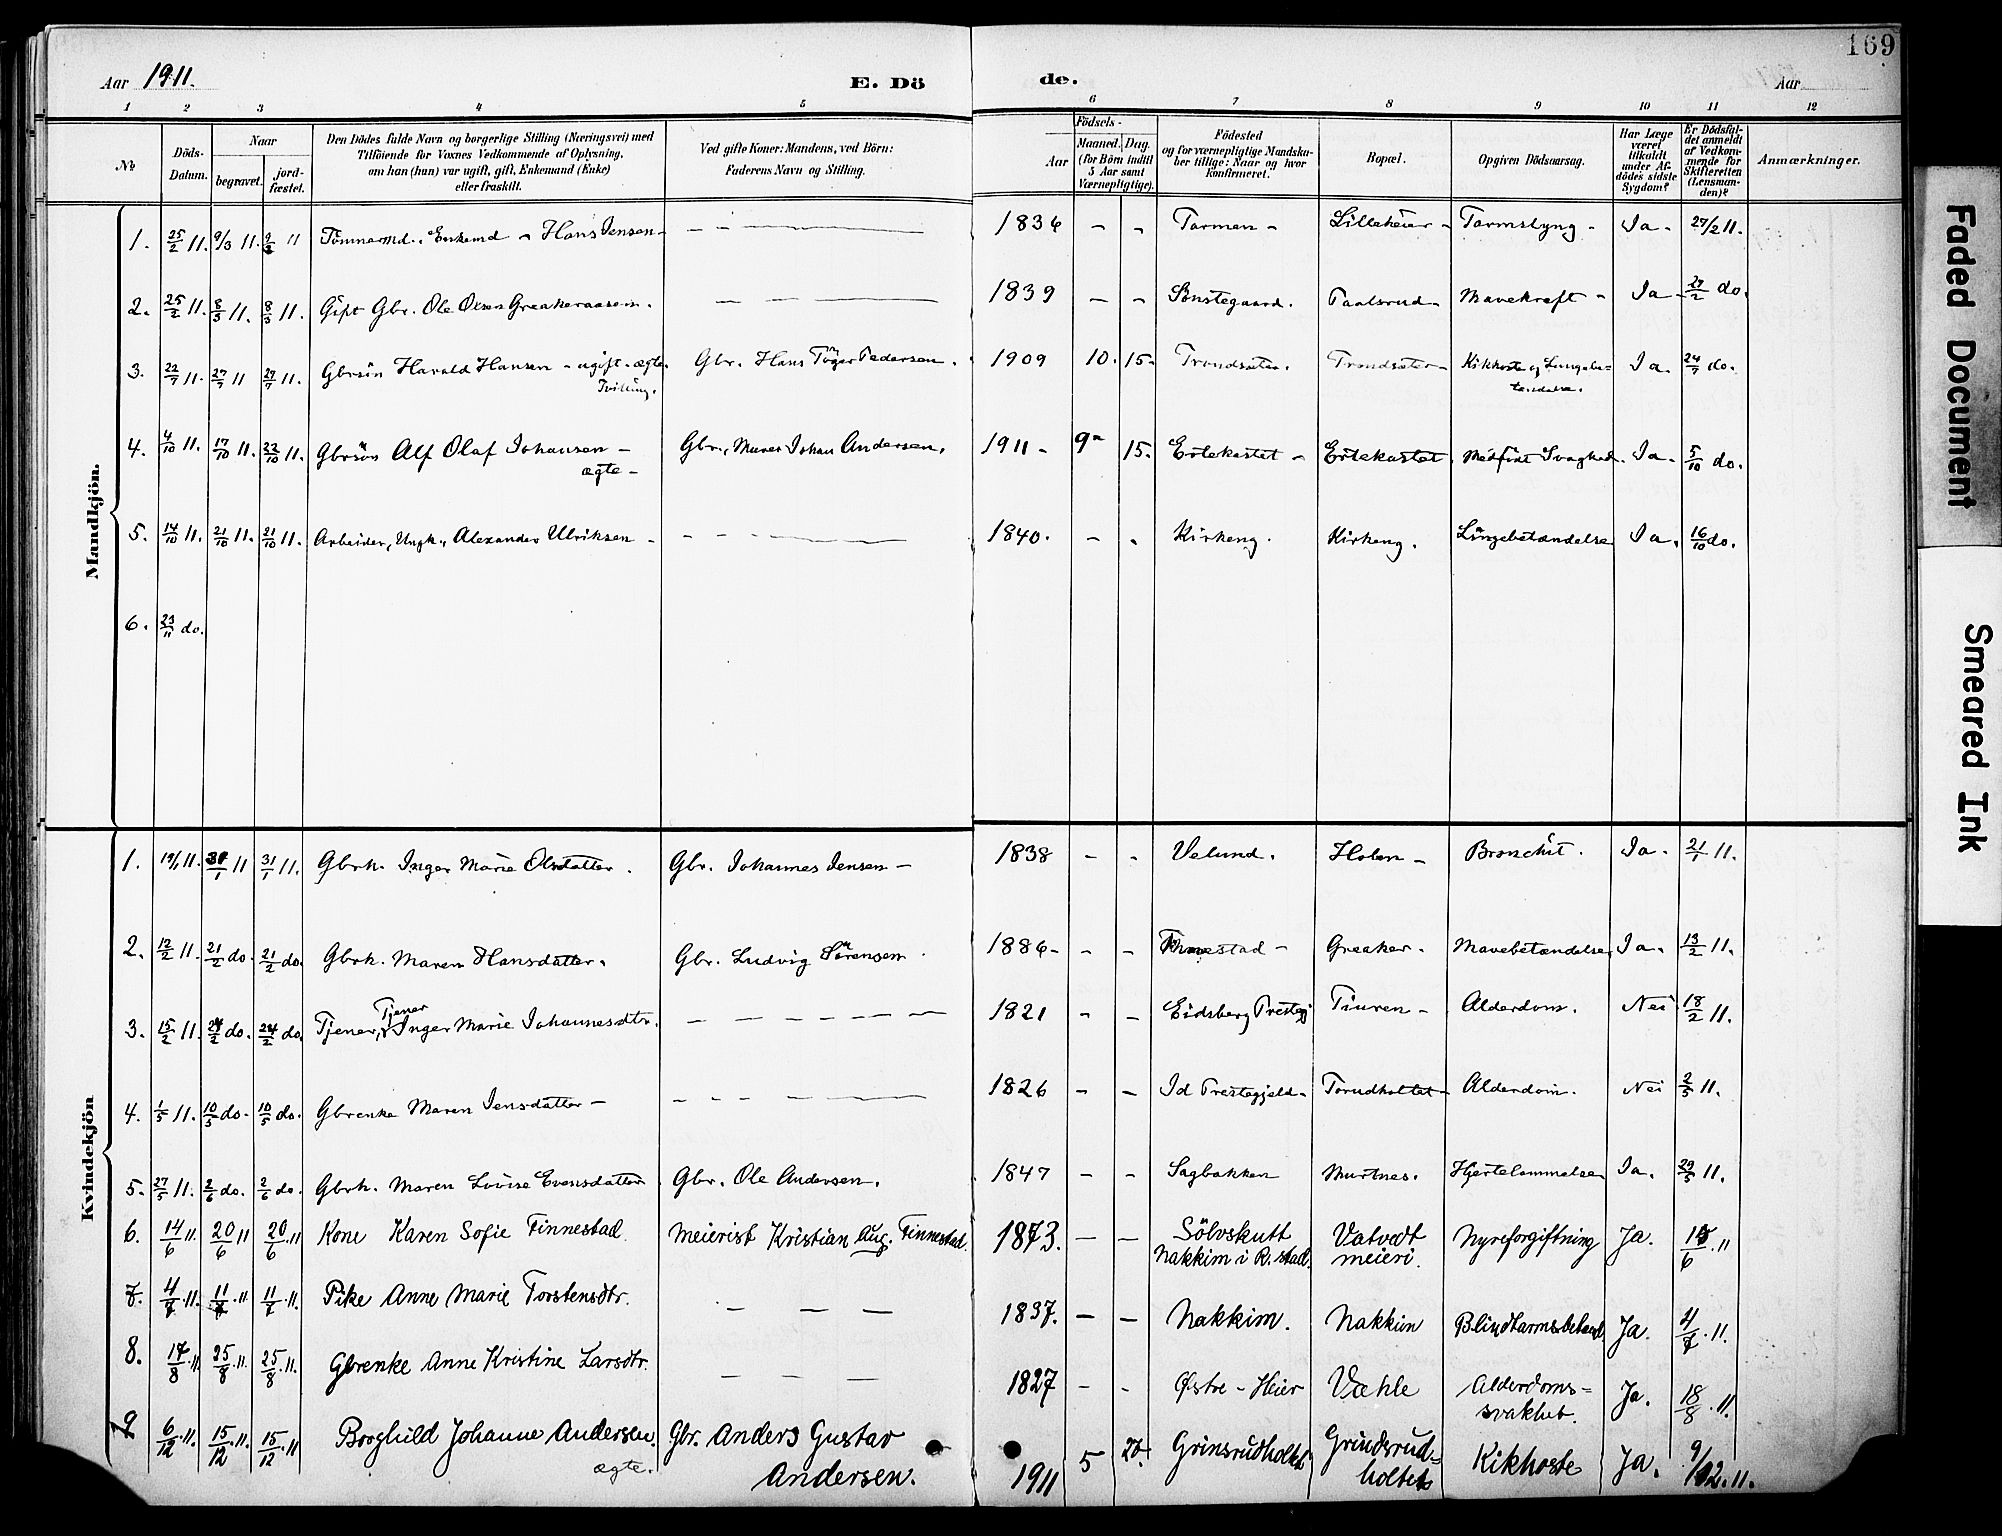 169
Aar 1911.
E. Dö de.
Aar
1 2 3 4 5 6 7 8 9 10 11 12
No
Döds-Datum.
Naar
begravet.
jord-fæstet.
Den Dödes fulde Navn og borgerlige Stilling (Næringsvei) med
Tilföiende for Voxnes Vedkommende af Oplysning,
om han (hun) var ugift, gift, Enkemand (Enke)
eller fraskilt.
Ved gifte Koner: Mandens, ved Börn:
Faderens Navn og Stilling.
Födsels-
Aar
Maaned. Dag.
(for Börn indtil
5 Aar samt
Værnepligtige).
Födested
og for værnepligtige Mandska-
ber tillige: Naar og hvor
konfirmeret.
Bopæl.
Opgiven Dödsaarsag.
Har Læge
været
tilkaldt
under Af-
dödes sidste
Sygdom?
Er Dödsfal-
det anmeldt
af Vedkom-
mende for
Skifteretten
(Lensman-
den)?
Anmærkninger.
Mandkjön.
1. 25/2 11. 9/3 11. 9/3 11 Tömmermd., Enkemd - Hans Jensen - 1836 - - Tarmen - Lilleheier - Tarmslyng - Ja - 27/2 11.
2. 25/2 11. 8/3 11. 8/3 11. Gift Gbr. Ole Olsen Greakeraasen. 1839 - - Sønstegaard. Paalsrud - Mavekræft - Ja - 27/2 do.
3. 22/7 11. 27/7 11 27/7 11. Gbrsön Harald Hansen - ugift - ægte. Gbr. Hans Töger Pedersen. 1909 10. 15. Trondsæter. Trondsæter - Kikhoste og Lungebe- Ja. 24/7 do.
Tvilling.
tændelse.
4. 4/10 11. 17/10 11. 22/10 11. Gbrsön Alf Olaf Johansen - Gbr., Murer Johan Andersen. 1911 - 9 - 15. Ertekastet - Ertekastet. Medfödt Svaghed. Ja - 5/10 do.
ægte -
5. 14/10 11. 21/10 11. 21/10 11. Arbeider, Ungk., Alexander Ulriksen - 1840. - - Kirkeng. Kirkeng. Lungebetændelse Ja. 16/10 do.
6. 23/11 do.
Kvindekjön
1. 19/1 11. 31/1 11 31/1 11. Gbrk. Inger Marie Olsdatter. Gbr. Johannes Jensen - 1838 - - Velund. Holen - Bronchit. Ja. 21/1 11.
2. 12/2 11. 21/2 do. 21/2 do. Gbrk. Maren Hansdatter. Gbr. Ludvig Sörensen. 1886 - - - Greaker. Mavebetændelse Ja. 13/2 11.
3. 15/2 11. 24/2 do. 24/2 do. Tjener, Tjener Inger Marie Johannesdtr. 1821 - - Eidsberg Prestegj Tiuren - Alderdom. Nei 18/2 11.
4. 1/5 11. 10/5 do. 10/5 do. Gbrenke Maren Jensdatter - 1826 - - Id Prestegjeld - Torudholtet - Alderdom. Nei 2/5 11.
5. 27/5 11. 2/6 do. 2/6 do. Gbrk. Maren Lovise Evensdatter Gbr. Ole Andersen. 1847 - - Sagbakken Murtnes. Hjertelammelse Ja. 29/5 11.
6. 14/6 11. 20/6 11 20/6 11 Kone Karen Sofie Finnestad. Meierist Kristian Aug. Finnestad. 1873. - - Sölvskutt Vatvedt Nyreforgiftning Ja. 15/6 11
Nakkim i R.stad. meieri.
7. 4/7 11. 11/7 11 11/7 11. Pike Anne Marie Torstensdtr. 1837. - - Nakkim. Nakkim Blindtarmsbetænd. Ja. 4/7 11.
8. 17/8 11. 25/8 11. 25/8 11. Gbrenke Anne Kristine Larsdtr. 1827 - - Østre - Heier Væhle Alderdoms= Ja. 18/8 11.
svakhet.
9 6/12 11. 15/12 11. 15/12 11 Borghild Johanne Andersen. Gbr. Anders Gustav Andersen. 1911 5 27. Grinsrudholtet Grindsrud=holtet Kikhoste Ja. 9/12. 11.
ægte.
Faded Document
Smeared Ink